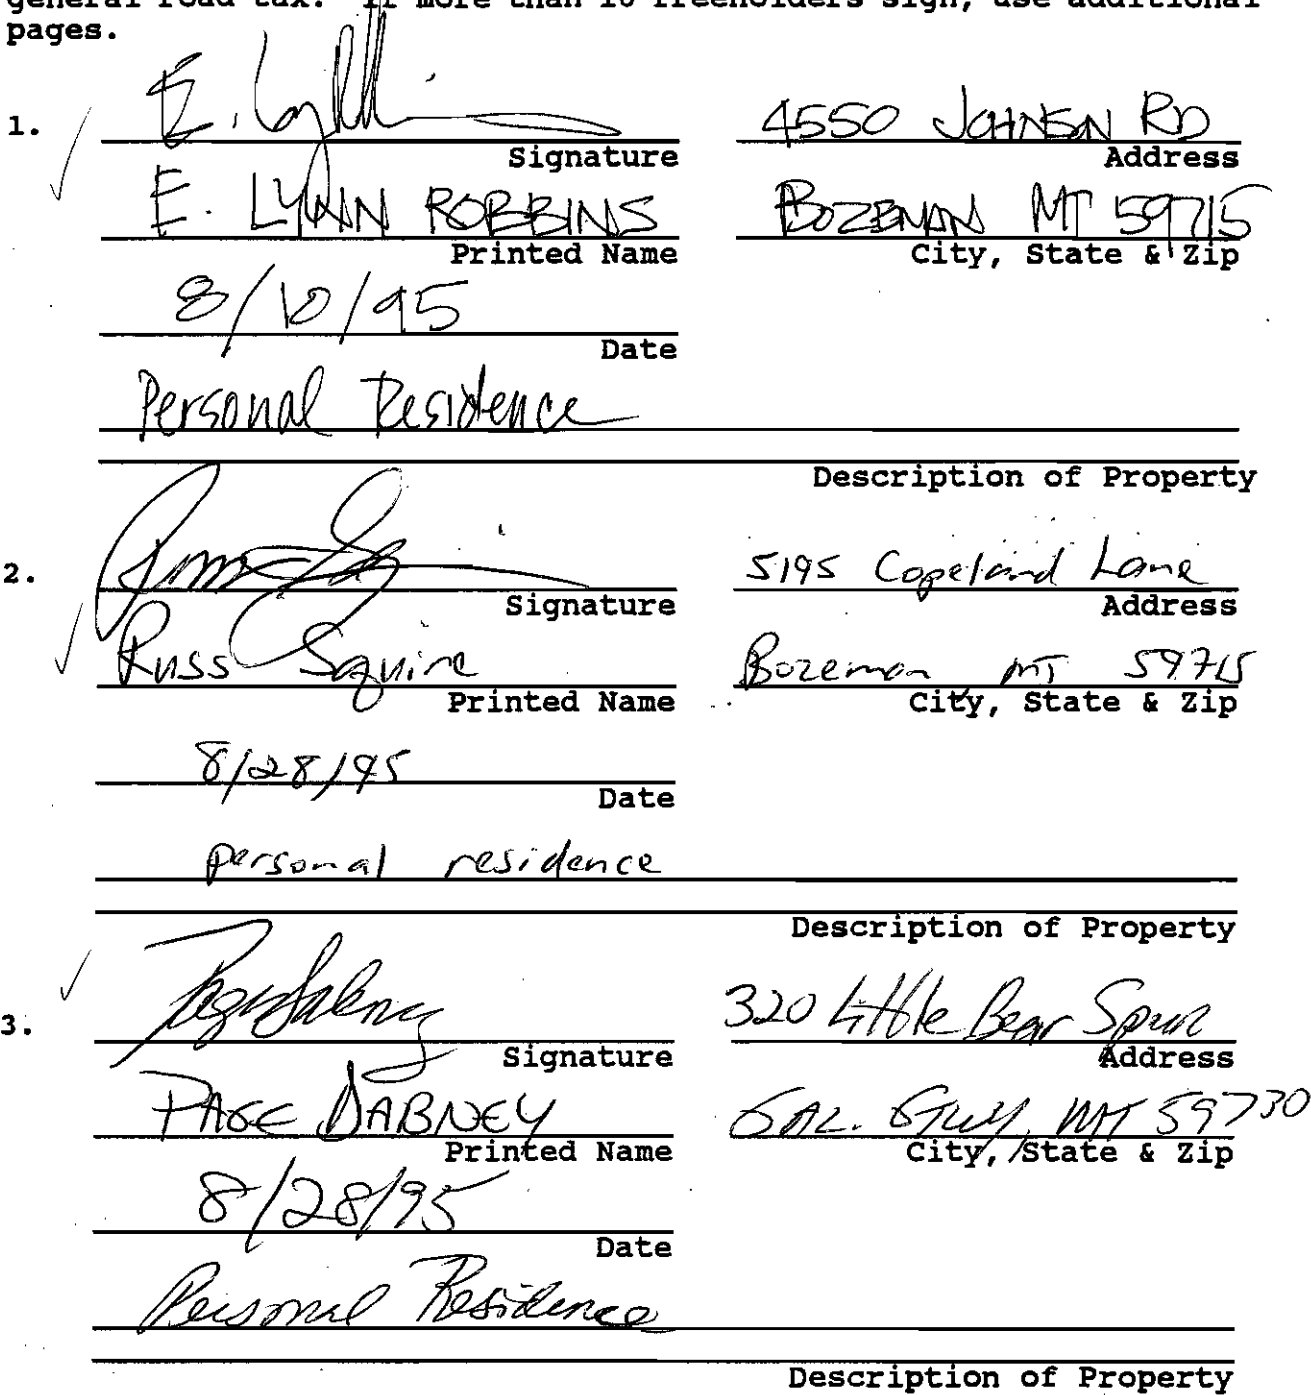 general road tax. If more than 10 freeholders sign, use additional
pages.
1.
Signature
4550 JOHNSON RD
Address
E. LYNN ROBBINS
Printed Name
BOZEMAN MT 59715
City, State & Zip
8/10/95
Date
Personal Residence
Description of Property
2.
Signature
5195 Copeland Lane
Address
Russ Squire
Printed Name
Bozeman MT 59715
City, State & Zip
8/28/95
Date
personal residence
Description of Property
3.
Page Dabney
Signature
320 Little Bear Spur
Address
PAGE DABNEY
Printed Name
GAL. GTWY, MT 59730
City, State & Zip
8/28/95
Date
Personal Residence
Description of Property